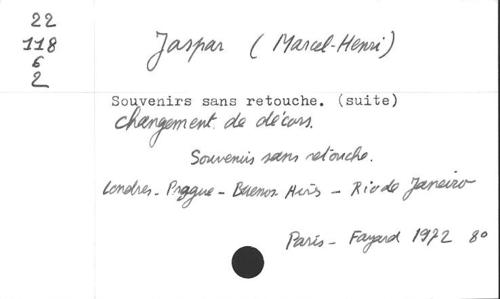 22
118
6
2
Jaspar (Marcel-Henri)
Souvenirs sans retouche. (suite)
changement de décors.
Souvenirs sans retouche.
Londres - Prague - Buenos Aires - Rio de Janeiro
Paris - Fayard 1972 8o